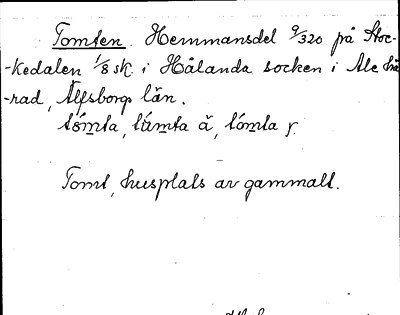 Tomten. Hemmansdel 9/320 på Stoc-
-kedalen 1/8 sk. i Hålanda socken i Ale hä
-rad, Älfsborgs län.
tömta, tùmta ă, tómta r.
Tomt, husplats av gammalt.